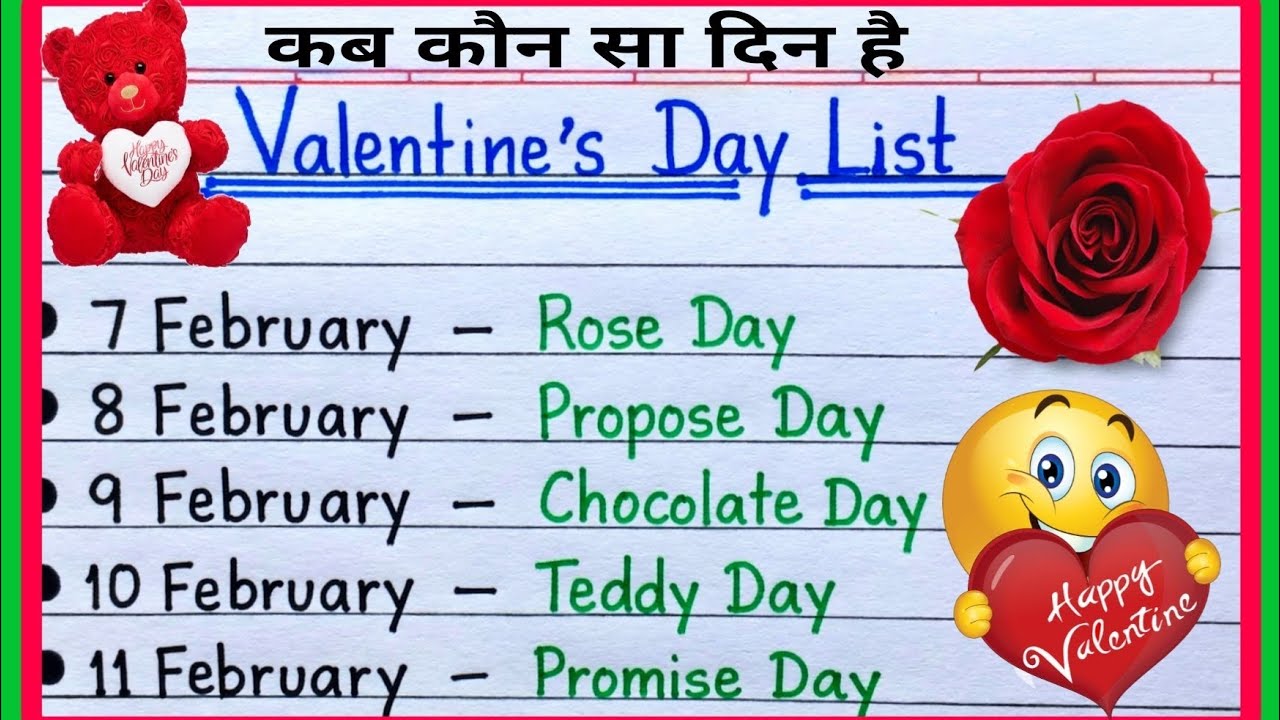 कब कौन सा दिन है
Valentine's Day List
Happy
Valentine's
Day
7 February – Rose Day
8 February – Propose Day
9 February – Chocolate Day
10 February – Teddy Day
11 February – Promise Day
Happy
Valentine